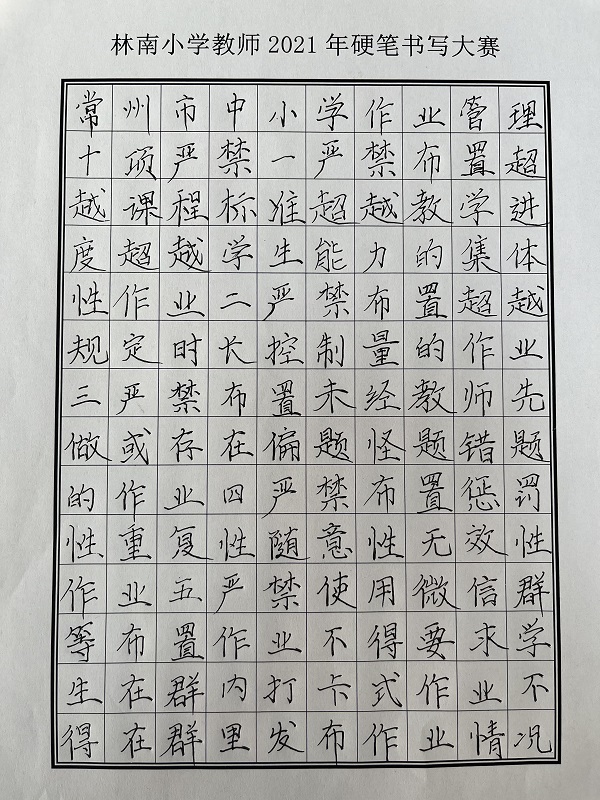 林南小学教师2021年硬笔书写大赛
常州市中小学作业管理
十项严禁一严禁布置超
越课程标准超越教学进
度超越学生能力的集体
性作业二严禁布置超越
规定时长控制量的作业
三严禁布置未经教师先
做或存在偏题怪题错题
的作业四严禁布置惩罚
性重复性随意性无效性
作业五严禁使用微信群
等布置作业不得要求学
生在群内打卡式作业不
得在群里发布作业情况